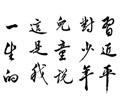 習近平
對少年
兒童說
這是我
一生的